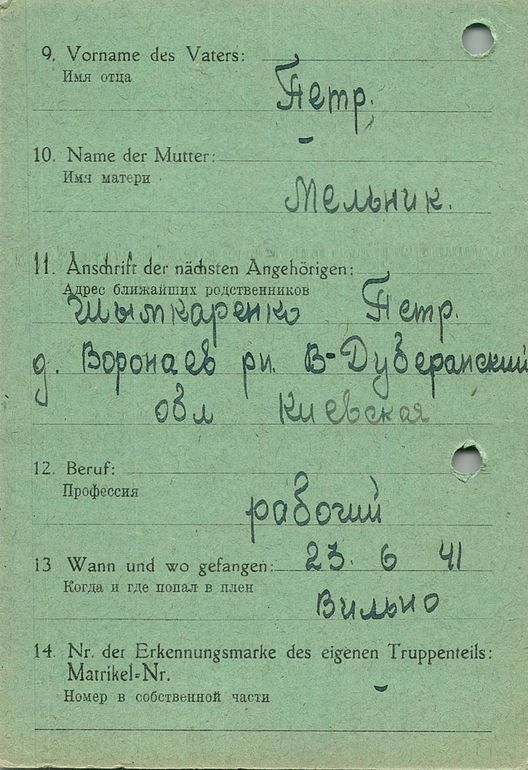 9. Vorname des Vaters:
Имя отца
Петр.
10. Name der Mutter:
Имя матери
Мельник.
11. Anschrift der nächsten Angehörigen:
Адрес ближайших родственников
Шымкаренко Петр.
д. Воронаев рн. В-Дуберанский
овл Киевская
12. Beruf:
Профессия
рабочий
13 Wann und wo gefangen: 23. 6 41
Когда и где попал в плен
Вильно
14. Nr. der Erkennungsmarke des eigenen Truppenteils:
Matrikel-Nr.
Номер в собственной части